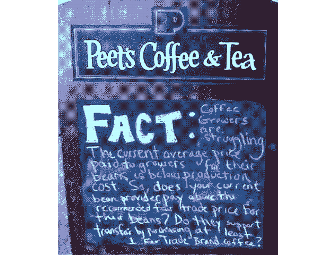 Peet's Coffee & Tea
FACT: Coffee
Growers
are
struggling
The current average price
paid to growers for their
beans is below production
cost. So, does your current
bean provider pay above the
recomended fair trade price for
their beans? Do they support
transfair by purchasing at least
1 Fair Trade Brand coffee?